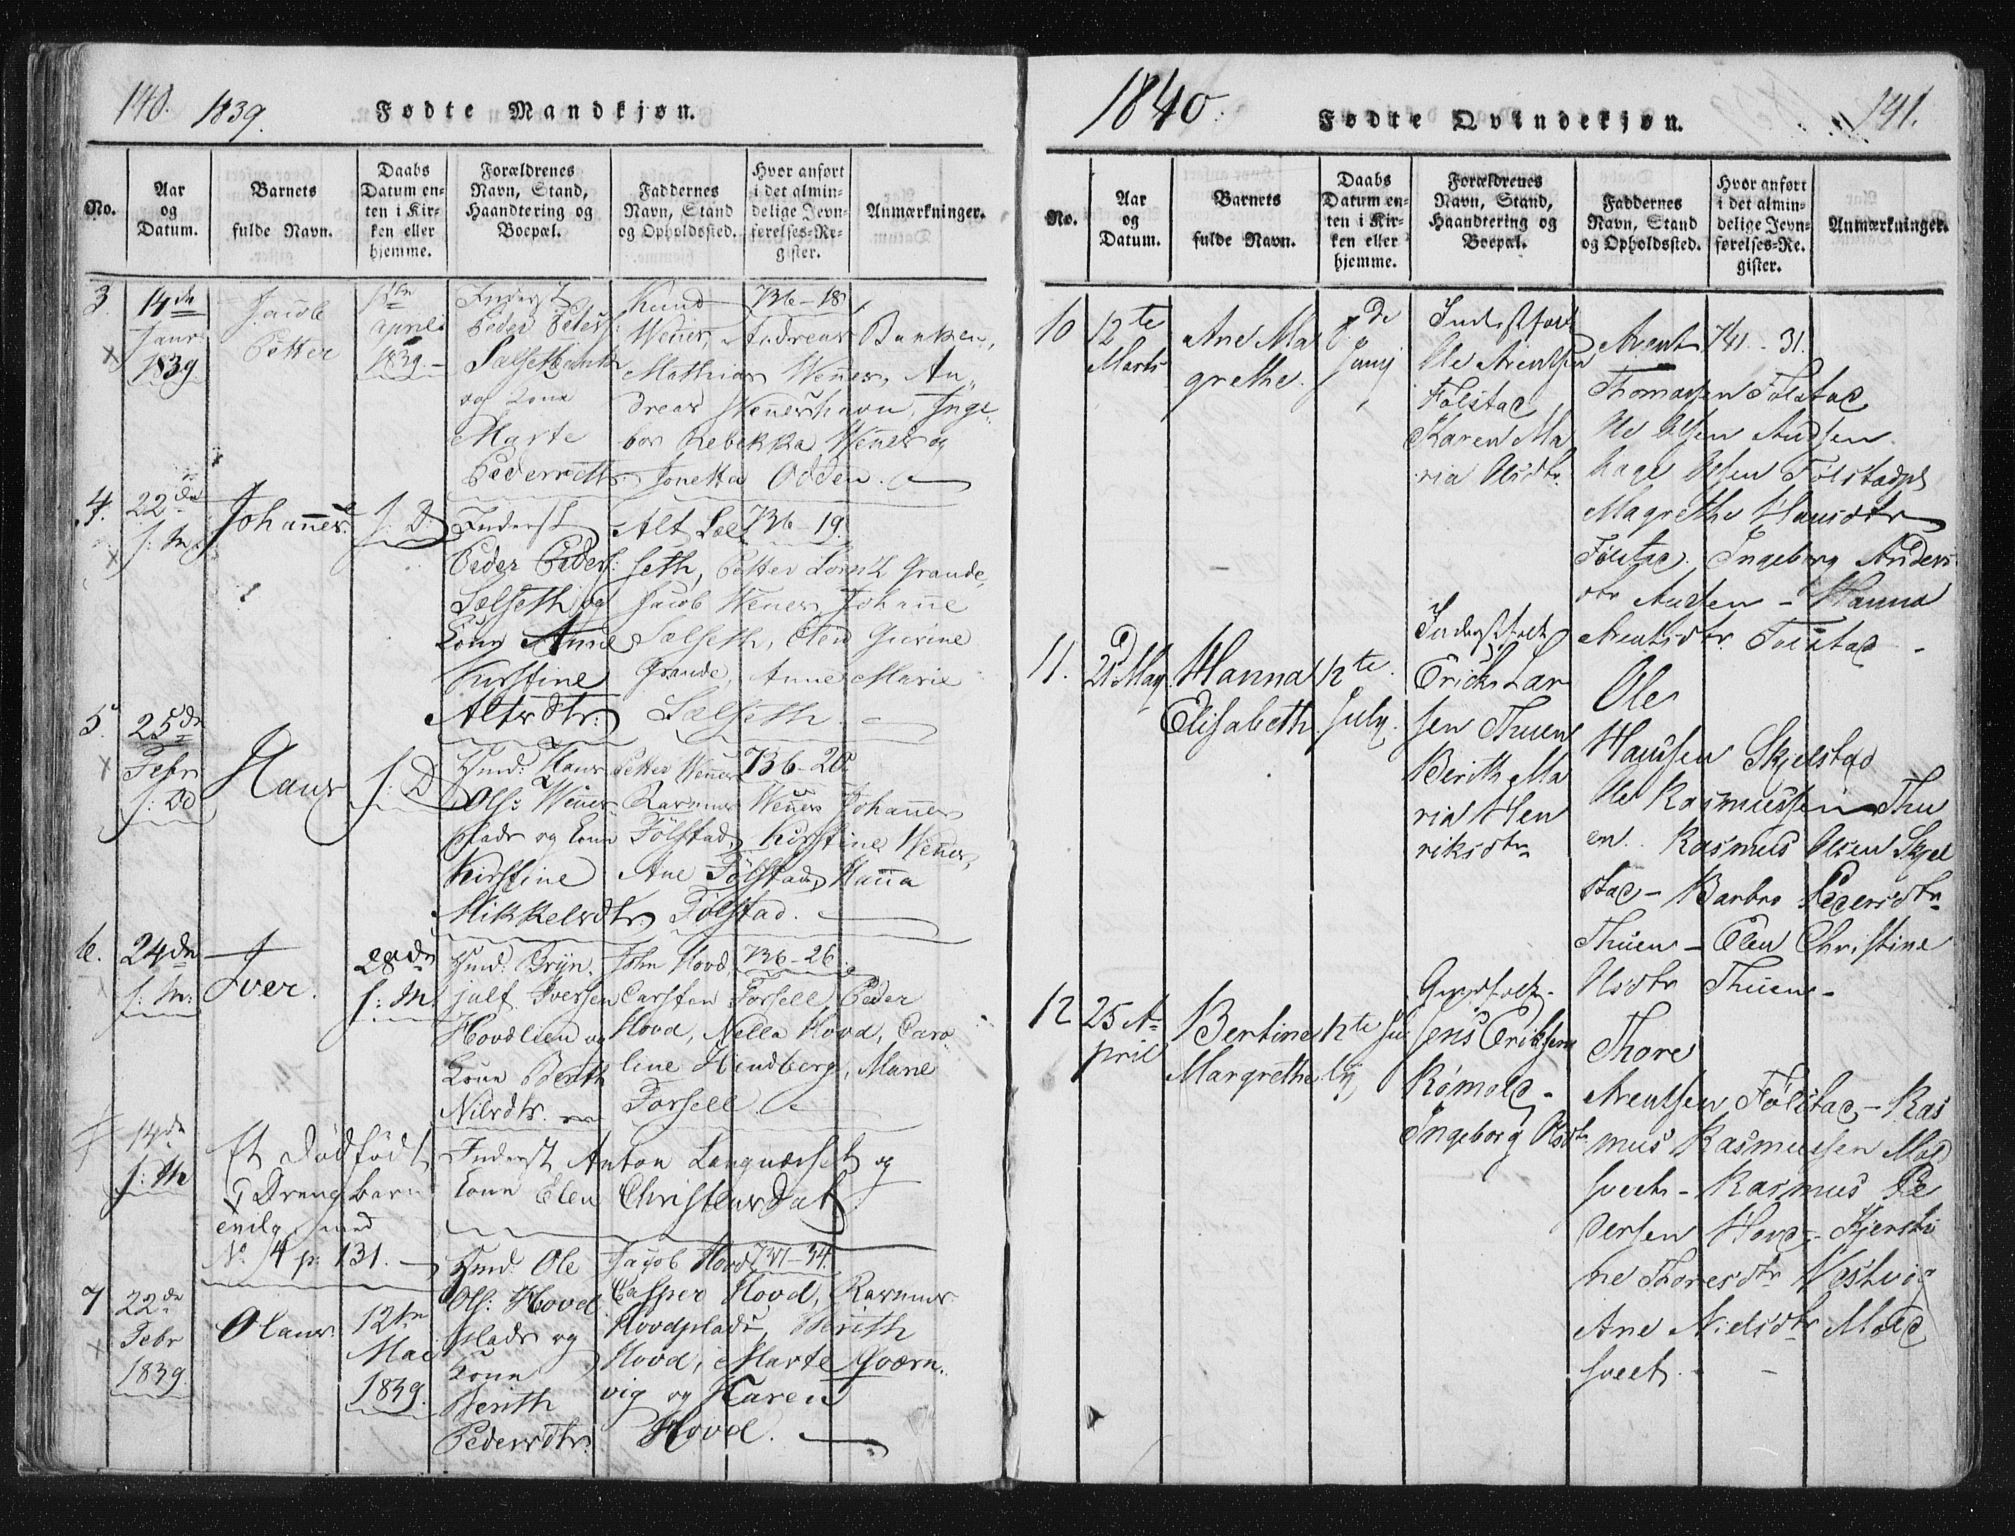 140. 1839.
Fødte Mandkjøn.
No.
Aar
og
Datum.
Barnets
fulde Navn.
Daabs
Datum en-
ten i Kir-
ken eller
hjemme.
Forældrenes
Navn, Stand,
Haandtering og
Boepæl.
Faddernes
Navn, Stand
og Opholdssted.
Hvor anført
i det almin-
delige Jevn-
førelses-Re-
gister.
Anmærkninger.
3.
14de
Janr
1839
Jacob
Petter
1ste
April
1839.
Inderst
Peder Peters:
og Kona
Marte
Knud 736-18.
Wenes, Andreas Banken,
Mathias Wenes, An-
dreas Weneshavn, Inge-
bor Rebekka Wenes og
Jonetta Odden.
4.
22de
s: M:
Johannes.
s: D:
Inderst
Peder Peders:
Sælseth og
Kone Anne
Kirstine
Altsdtr.
Alt Sæl 736-19.
seth, Petter Grande,
Jacob Wenes, Johanne
Sælseth, Elen Gurine
Grande, Anne Marie
Sælseth.
5.
25de
Febr
s: D
Hans
s: D
Hmd: Hans
Ols: Wenes
plads og Kone
Kirstine
Mikkelsdtr.
Petter Wenes 736-20.
Rasmus Wenes Johannes
Følstad, Kirstine Wenes,
Ane Følstad, Hanna
Følstad.
6.
24de
s: M:
Iver.
28de
s: M
Hmd: Bryn-
julf Iversen
Hovdlien og
Kone Berith
Nilsdtr.
John Hovd, 736-26.
Carsten Forsell, Peder
Hovd, Nella Hovd, Caro-
line Hindberg, Marie
Forsell
14de
s: M
Et dødfødt
Drengebarn
No. 4 p: 131.
Inderst Anton Langnæsset og
Kone Elen Christensdat
7
22de
Febr
1839
Olaus
12te
Mai
1839.
Hmd: Ole
Ols: Hovd
plads og
Kone
Berith
Pedersdtr.
Jacob Hovd 737-34.
Casper Hovd, Rasmus
Hovdplads, Berith
Hovd, Marte Qværn-
vig og Karen
Hovd.
1840.
Fødte Qvindekjøn.
141.
No.
Aar
og
Datum.
Barnets
fulde Navn.
Daabs
Datum en-
ten i Kir-
ken eller
hjemme.
Forældrenes
Navn, Stand,
Haandtering og
Boepæl.
Faddernes
Navn, Stand
og Opholdssted.
Hvor anført
i det almin-
delige Jevn-
førelses-Re-
gister.
Anmærkninger.
10
12te
Marts
Ane Ma
grethe.
8de
Juny
Inderstfolk
Ole Arentsen
Følstad
Karen Ma
ria Olsdtr.
Arent 741-31.
Thomassen Følstad
Ole Olsen Audsen.
Hage Olsen Følstadpl
Magrethe Hansdtr
Følstad, Ingeborg Anders
dtr Audsen - Hanna
Arentsdtr Følstad
11.
21 May
Hanna
Elisabeth
12te
July.
Inderstfolk
Erick Lar
sen Thuen
Berith Ma
ria Hen
riksdtr
Ole
Hanssen Skjelstad
Ole Rasmussen Thu
en. Rasmus Olsen Skjel
stad - Barbro Pedersdtr
Thuen - Elen Christine
Olsdtr Thuen
12
25 A-
pril
Bertine
Margrethe
12te Ju
ly,
Gaardfolk
Jens Eriksen
Rømold -
Ingeborg Olsdtr
Thore
Arentsen Følstad - Ras
mus Rasmussen Mold
sveet - Rasmus Pe
dersen Hovd - Kjersti
ne Thoresdtr Vestvig
Ane Nielsdtr Mold
sveet.